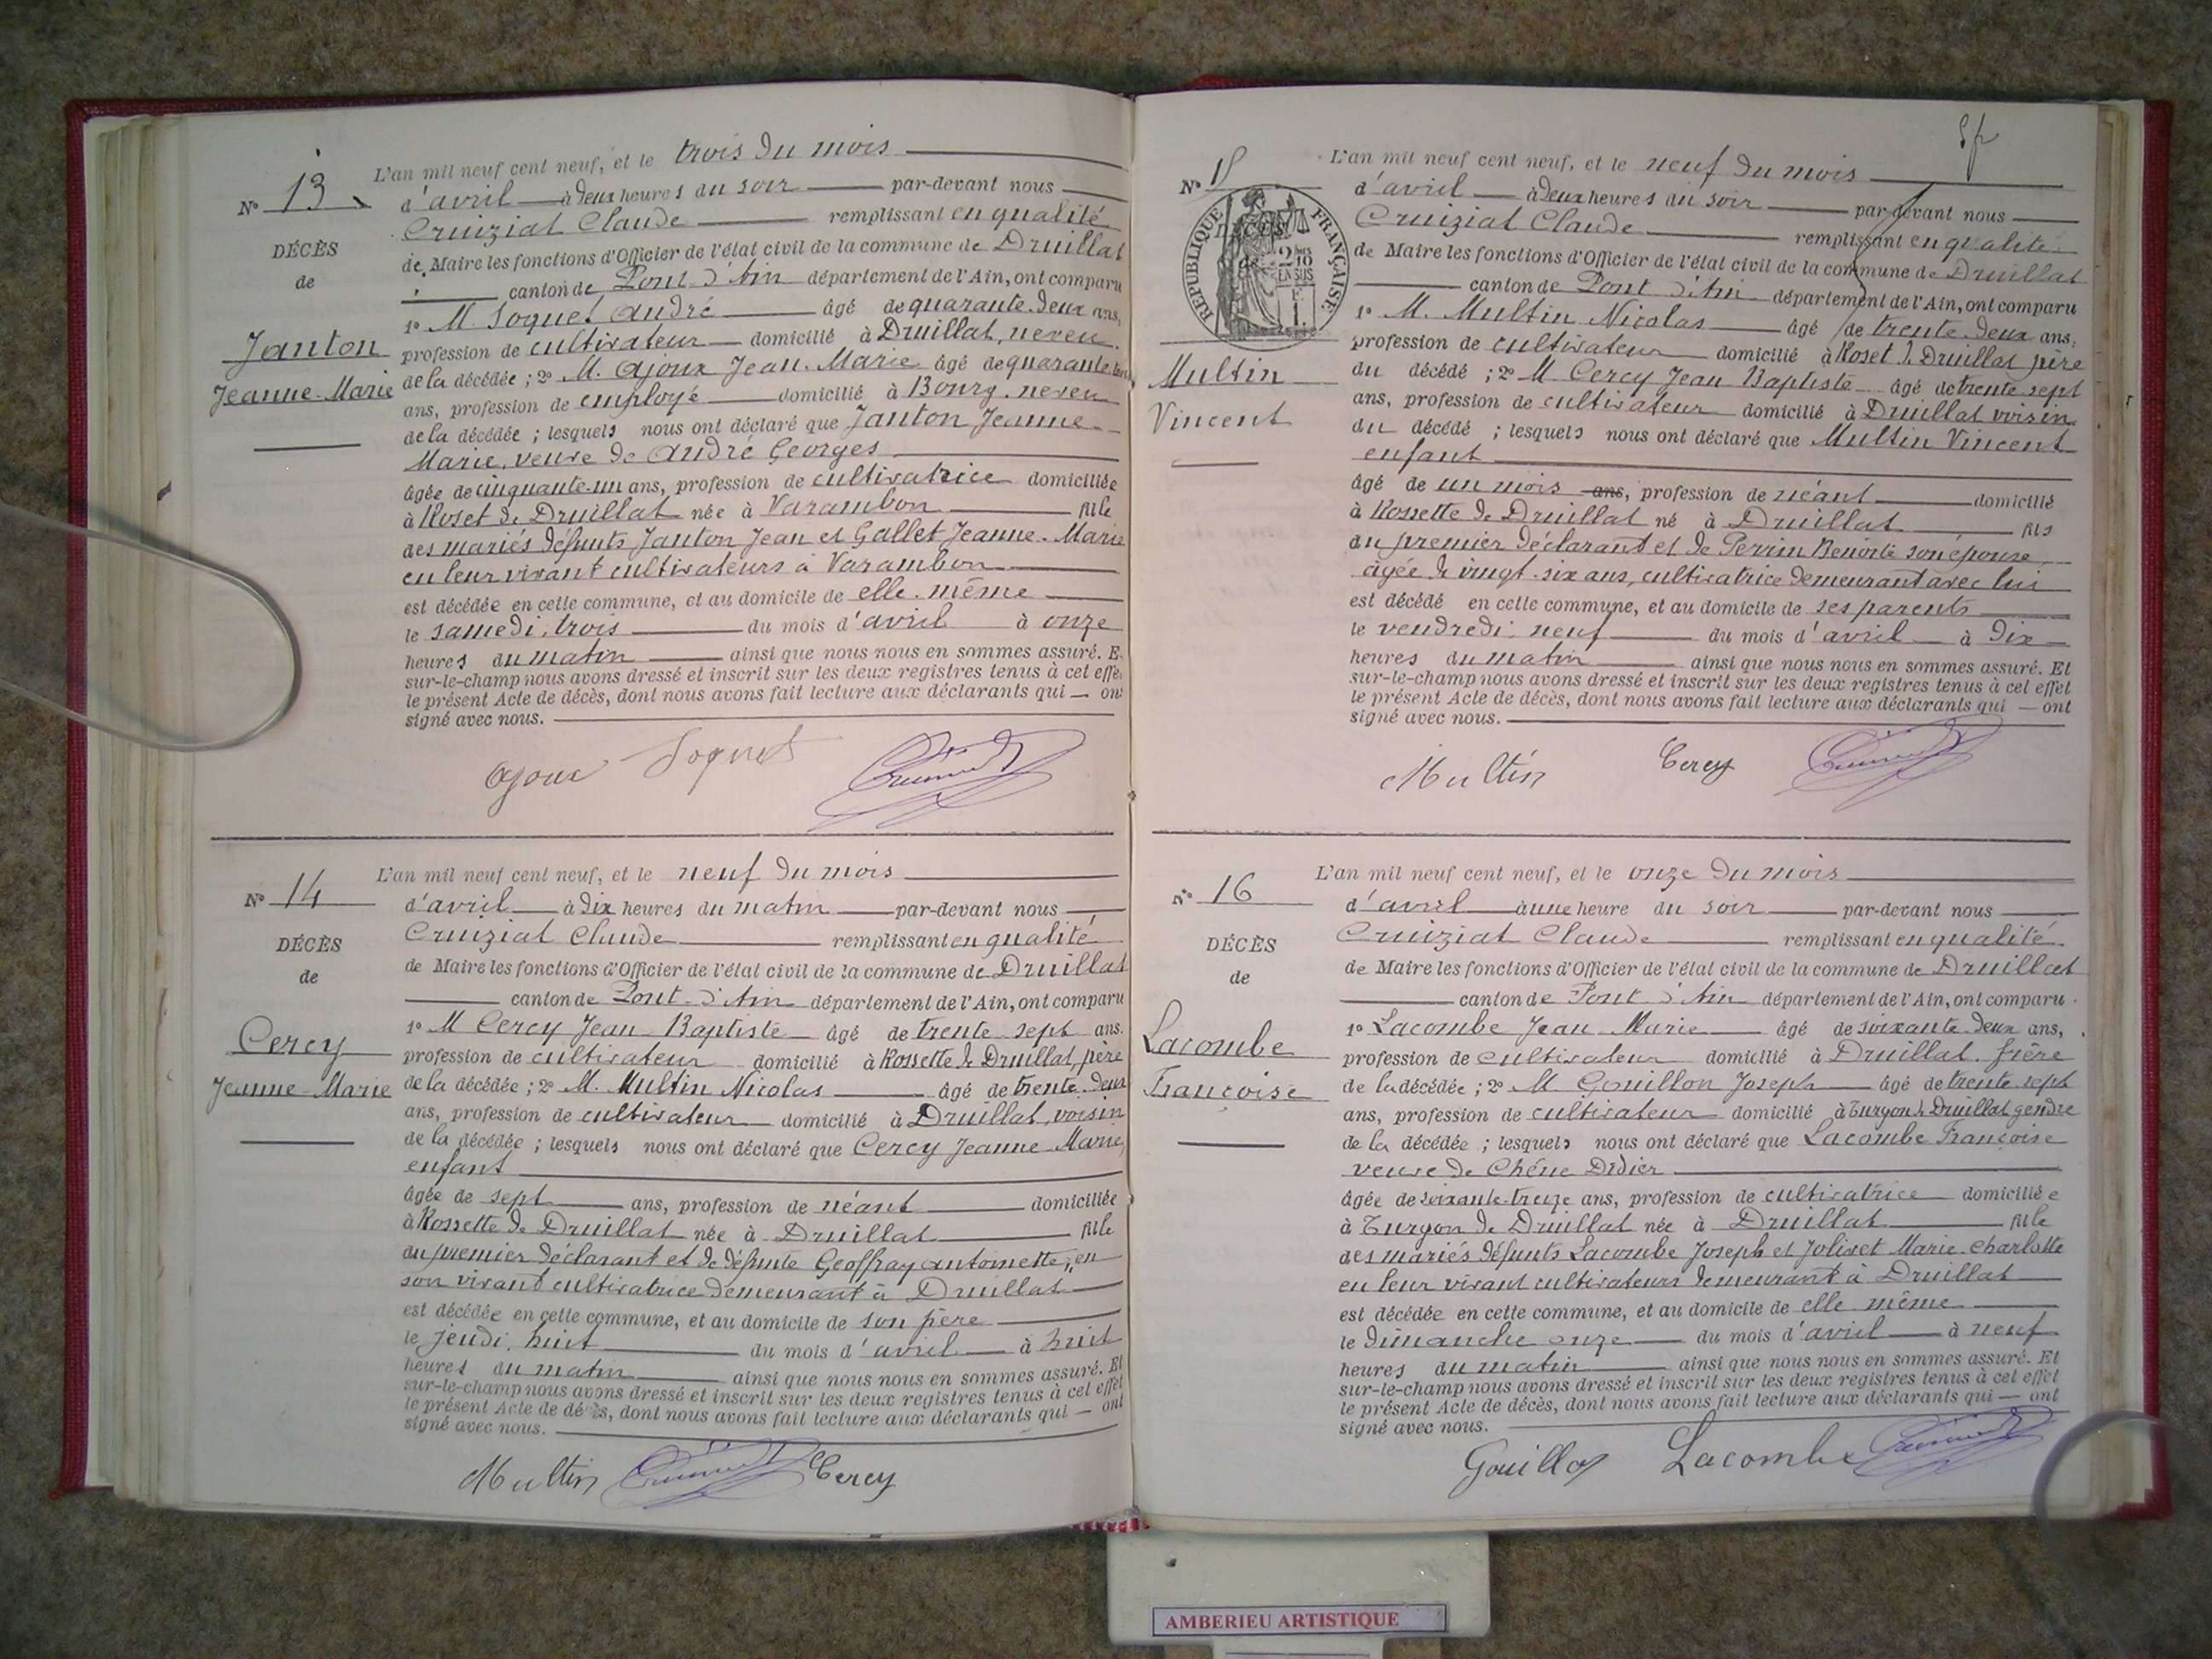 L'an mil neuf cent neuf, et le trois du mois
N° 13
d'avril à deux heures du soir par-devant nous
Cruiziat Claude remplissant en qualité
DÉCÈS
de Maire les fonctions d'Officier de l'état civil de la commune de Druillat
de
canton de Pont d'Ain département de l'Ain, ont comparu
1° M. Soquet André âgé de quarante-deux ans,
Janton
profession de cultivateur domicilié à Druillat, neveu
Jeanne-Marie
de la décédée ; 2° M. Ajoux Jean-Marie âgé de quarante
ans, profession de employé domicilié à Bourg, neveu
de la décédée ; lesquels nous ont déclaré que Janton Jeanne-
Marie, veuve de André Georges
âgée de cinquante-un ans, profession de cultivatrice domiciliée
à Roset de Druillat née à Varambon fille
des mariés défunts Janton Jean et Gallet Jeanne-Marie
en leur vivant cultivateurs à Varambon
est décédée en cette commune, et au domicile de elle-même
le samedi, trois du mois d'avril à onze
heures du matin ainsi que nous nous en sommes assuré. E
sur-le-champ nous avons dressé et inscrit sur les deux registres tenus à cet effe
le présent Acte de décès, dont nous avons fait lecture aux déclarants qui ont
signé avec nous.
Ajoux Soquet
L'an mil neuf cent neuf, et le neuf du mois
N° 14
d'avril à dix heures du matin par-devant nous
Cruiziat Claude remplissant en qualité
DÉCÈS
de Maire les fonctions d'Officier de l'état civil de la commune de Druillat
de
canton de Pont-d'Ain département de l'Ain, ont comparu
1° M Cercy Jean-Baptiste âgé de trente-sept ans.
Cercy
profession de cultivateur domicilié à Rossette de Druillat, père
Jeanne-Marie
de la décédée ; 2° M. Multin Nicolas âgé de trente-deux
ans, profession de cultivateur domicilié à Druillat, voisin
de la décédée ; lesquels nous ont déclaré que Cercy Jeanne-Marie,
enfant
âgée de sept ans, profession de néant domiciliée
à Rossette de Druillat née à Druillat fille
du premier déclarant et de défunte Geoffray Antoinette, en
son vivant cultivatrice demeurant à Druillat
est décédée en cette commune, et au domicile de son père
le jeudi, huit du mois d'avril à huit
heures du matin ainsi que nous nous en sommes assuré. Et
sur-le-champ nous avons dressé et inscrit sur les deux registres tenus à cet effet
le présent Acte de décès, dont nous avons fait lecture aux déclarants qui ont
signé avec nous.
Multin Cercy
L'an mil neuf cent neuf, et le neuf du mois
N° 15
d'avril à deux heures du soir par-devant nous
Cruiziat Claude remplissant en qualité
RÉPUBLIQUE FRANÇAISE
DÉCÈS
de Maire les fonctions d'Officier de l'état civil de la commune de Druillat
canton de Pont d'Ain département de l'Ain, ont comparu
1° M. Multin Nicolas âgé de trente-deux ans,
profession de cultivateur domicilié à Roset de Druillat père
Multin
du décédé ; 2° M Cercy Jean Baptiste âgé de trente-sept
Vincent
ans, profession de cultivateur domicilié à Druillat voisin
du décédé ; lesquels nous ont déclaré que Multin Vincent
enfant
âgé de un mois ans, profession de néant domicilié
à Rossette de Druillat né à Druillat fils
du premier déclarant et de Perrin Benoîte son épouse,
âgée de vingt-six ans, cultivatrice demeurant avec lui
est décédé en cette commune, et au domicile de ses parents
le vendredi, neuf du mois d'avril à dix
heures du matin ainsi que nous nous en sommes assuré. Et
sur-le-champ nous avons dressé et inscrit sur les deux registres tenus à cet effet
le présent Acte de décès, dont nous avons fait lecture aux déclarants qui ont
signé avec nous.
Multin Cercy
L'an mil neuf cent neuf, et le onze du mois
N° 16
d'avril à une heure du soir par-devant nous
Cruiziat Claude remplissant en qualité
DÉCÈS
de Maire les fonctions d'Officier de l'état civil de la commune de Druillat
de
canton de Pont d'Ain département de l'Ain, ont comparu
1° Lacombe Jean-Marie âgé de soixante-deux ans,
Lacombe
profession de cultivateur domicilié à Druillat, frère
Françoise
de la décédée ; 2° M. Gouillon Joseph âgé de trente-sept
ans, profession de cultivateur domicilié à Turgon de Druillat gendre
de la décédée ; lesquels nous ont déclaré que Lacombe Françoise
veuve de Chêne Didier
âgée de soixante-treize ans, profession de cultivatrice domiciliée
à Turgon de Druillat née à Druillat fille
des mariés défunts Lacombe Joseph et Jolivet Marie-Charlotte
en leur vivant cultivateurs demeurant à Druillat
est décédée en cette commune, et au domicile de elle-même
le dimanche onze du mois d'avril à neuf
heures du matin ainsi que nous nous en sommes assuré. Et
sur-le-champ nous avons dressé et inscrit sur les deux registres tenus à cet effet
le présent Acte de décès, dont nous avons fait lecture aux déclarants qui ont
signé avec nous.
Gouillon Lacombe
AMBERIEU ARTISTIQUE